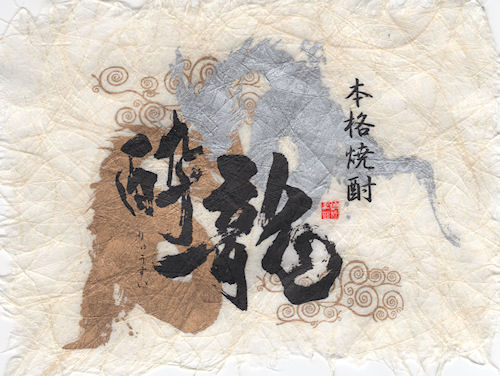 本格焼酎
龍酔
りゅうすい